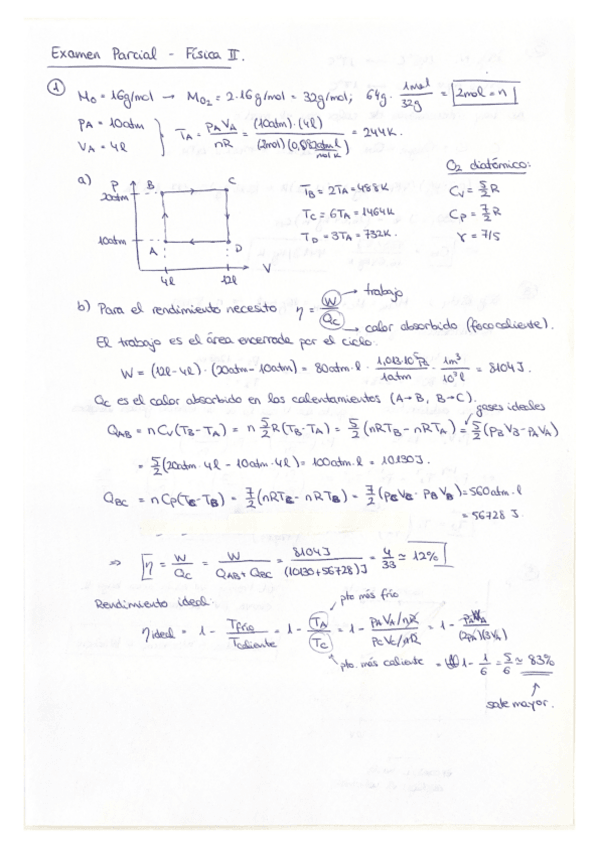 Examen Parcial - Física II.
① M_O = 16g/mol → M_O2 = 2·16g/mol = 32g/mol; 64g · 1mol/32g = 2mol = n
P_A = 10atm
V_A = 4l
T_A = P_A V_A / nR = (10atm)·(4l) / (2mol)(0,082 atm·l/mol·K) = 244K.
O2 diatómico:
a) P
B C
20atm
10atm
A D
4l 12l V
T_B = 2T_A = 488K
T_C = 6T_A = 1464K
T_D = 3T_A = 732K.
C_V = 5/2 R
C_P = 7/2 R
γ = 7/5
b) Para el rendimiento necesito η = W/Q_C → trabajo
→ calor absorbido (foco caliente).
El trabajo es el área encerrada por el ciclo:
W = (12l-4l)·(20atm-10atm) = 80atm·l · 1,013·10^5 Pa/1atm · 1m³/10³l = 8104J.
Q_C es el calor absorbido en los calentamientos (A→B, B→C).
gases ideales
Q_AB = nC_V(T_B-T_A) = n 5/2 R(T_B-T_A) = 5/2 (nRT_B - nRT_A) = 5/2 (P_B V_B - P_A V_A)
= 5/2 (20atm·4l - 10atm·4l) = 100atm·l = 10130J.
Q_BC = nC_P(T_C-T_B) = 7/2 (nRT_C - nRT_B) = 7/2 (P_C V_C - P_B V_B) = 560atm·l
= 56728 J.
⇒ η = W/Q_C = W/(Q_AB + Q_BC) = 8104J/(10130+56728)J = 4/33 ≃ 12%
Rendimiento ideal:
pto más frío
η ideal = 1 - T frío/T caliente = 1 - T_A/T_C = 1 - (P_A V_A/nR)/(P_C V_C/nR) = 1 - P_A V_A/(2P_A)(3V_A)
pto. más caliente = 1 - 1/6 = 5/6 ≃ 83%
sale mayor.